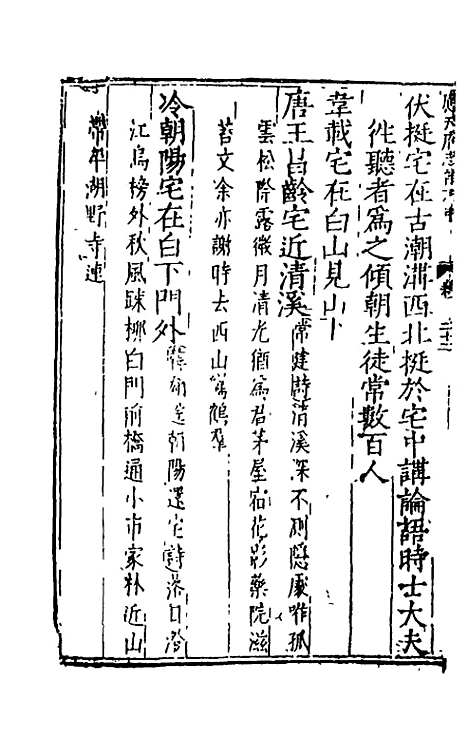 應天府志卷
二十二
伏挺宅在古潮溝西北挺於宅中講論語時士大夫
徃聽者爲之傾朝生徒常數百人
韋載宅在白山見山下
唐王昌齡宅近清溪常建詩清溪深不測隱處唯孤
雲松際露微月清光猶爲君茅屋宿花影藥院滋
苔文余亦謝時去西山鸞鶴羣
冷朝陽宅在白下門外韓翃送朝陽還宅詩落日沿
江烏榜外秋風疎柳白門前橋通小市家林近山
帶平湖野寺連